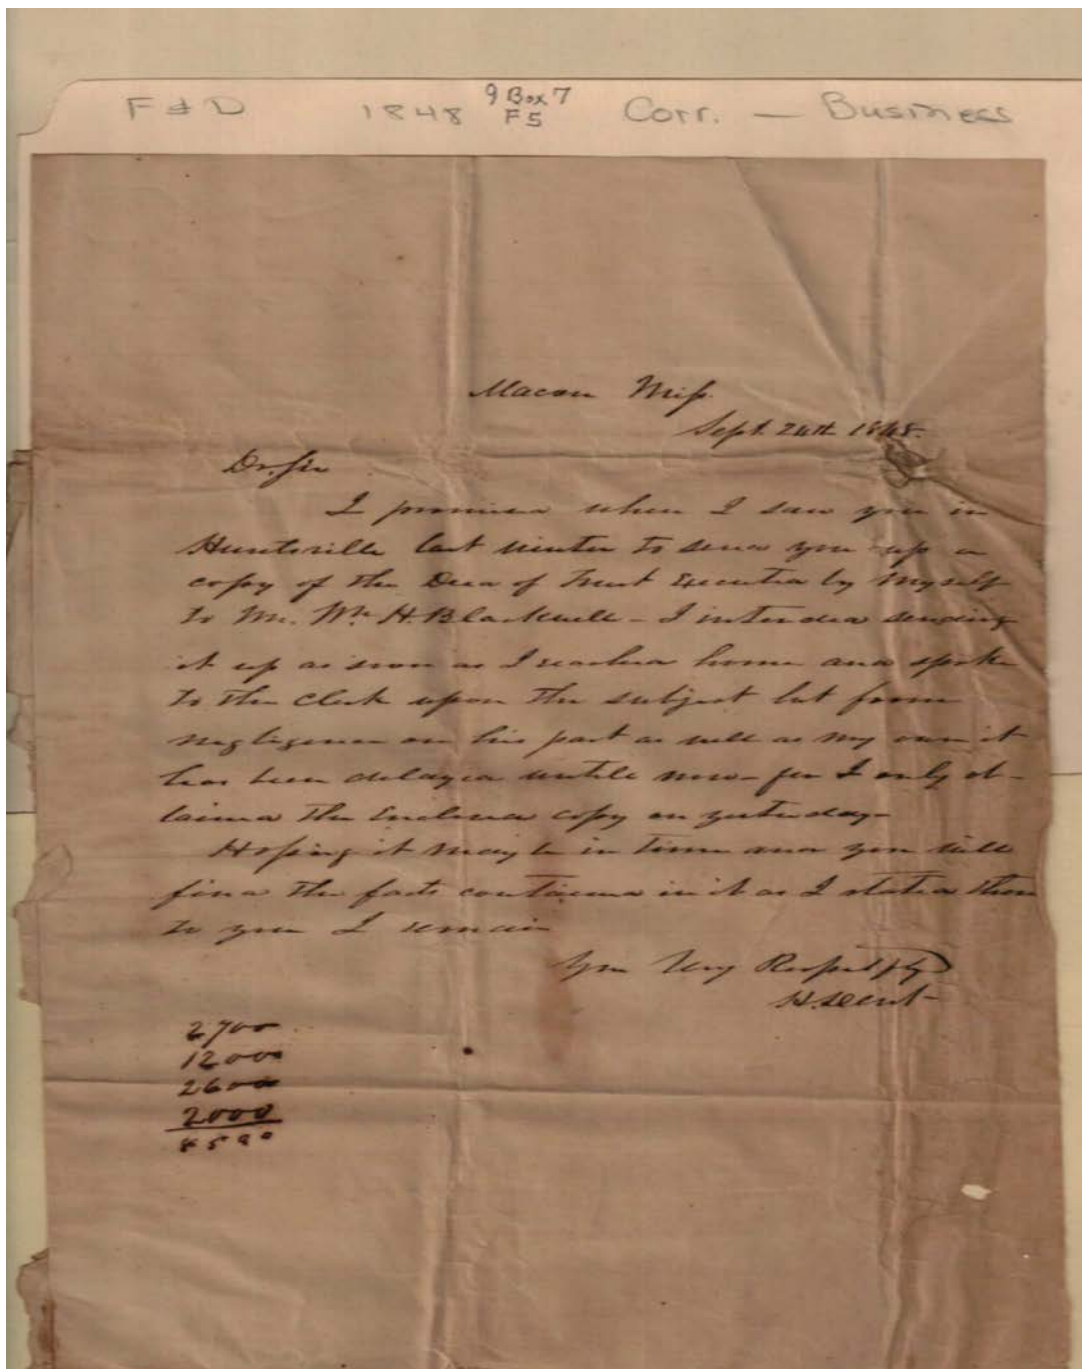 F & D 1848 9 Box 7 Corr. — Business
F5
Macon Miss.
Sept. 24th 1848.
Dr. Sir
I promised when I saw you in
Huntsville last winter to send you up a
copy of the Deed of Trust Executed by myself
to Mr. Wm H. Blackwell - I intended sending
it up as soon as I reached home and spoke
to the Clerk upon the subject but from
negligence on his part as well as my own it
has been delayed untill now - for I only ob-
tained the Enclosed copy on yesterday -
Hoping it may be in time and you will
find the facts contained in it as I stated them
to you I remain
Your Very Respectfly
H.
2700
1200
2600
2000
8500